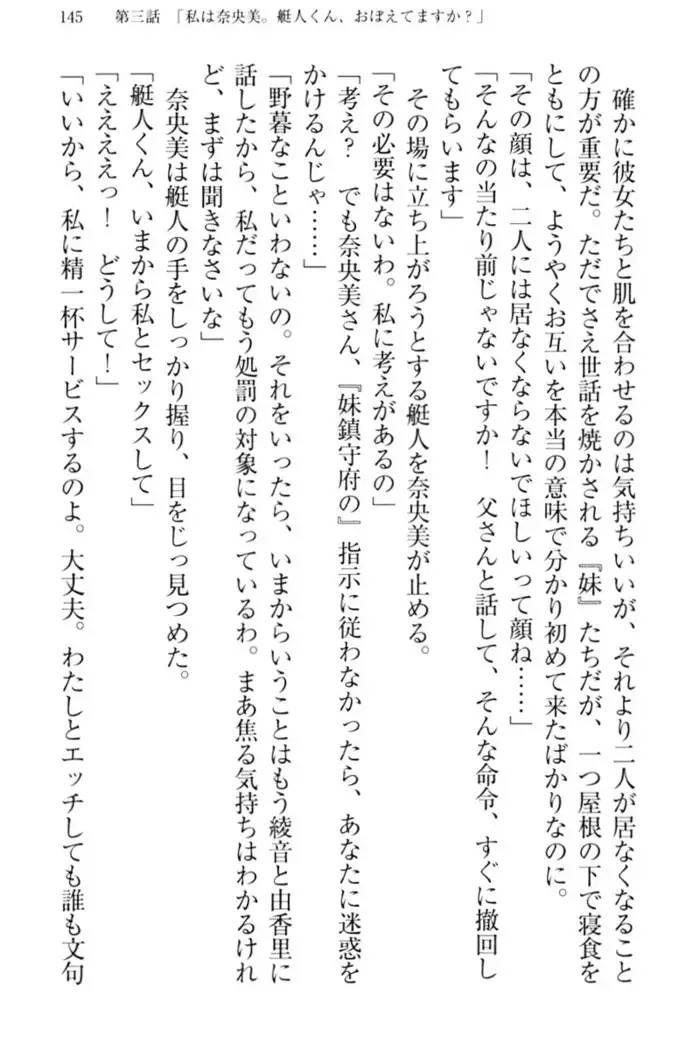 145　第三話　「私は奈央美。艇人くん、おぼえてますか？」
　確かに彼女たちと肌を合わせるのは気持ちいいが、それより二人が居なくなること
の方が重要だ。ただでさえ世話を焼かされる『妹』たちだが、一つ屋根の下で寝食を
ともにして、ようやくお互いを本当の意味で分かり初めて来たばかりなのに。
「その顔は、二人には居なくならないでほしいって顔ね……」
「そんなの当たり前じゃないですか！　父さんと話して、そんな命令、すぐに撤回し
てもらいます」
　その場に立ち上がろうとする艇人を奈央美が止める。
「その必要はないわ。私に考えがあるの」
「考え？　でも奈央美さん、『妹鎮守府の』指示に従わなかったら、あなたに迷惑を
かけるんじゃ……」
「野暮なこといわないの。それをいったら、いまからいうことはもう綾音と由香里に
話したから、私だってもう処罰の対象になっているわ。まあ焦る気持ちはわかるけれ
ど、まずは聞きなさいな」
　奈央美は艇人の手をしっかり握り、目をじっ見つめた。
「艇人くん、いまから私とセックスして」
「ええええっ！　どうして！」
「いいから、私に精一杯サービスするのよ。大丈夫。わたしとエッチしても誰も文句